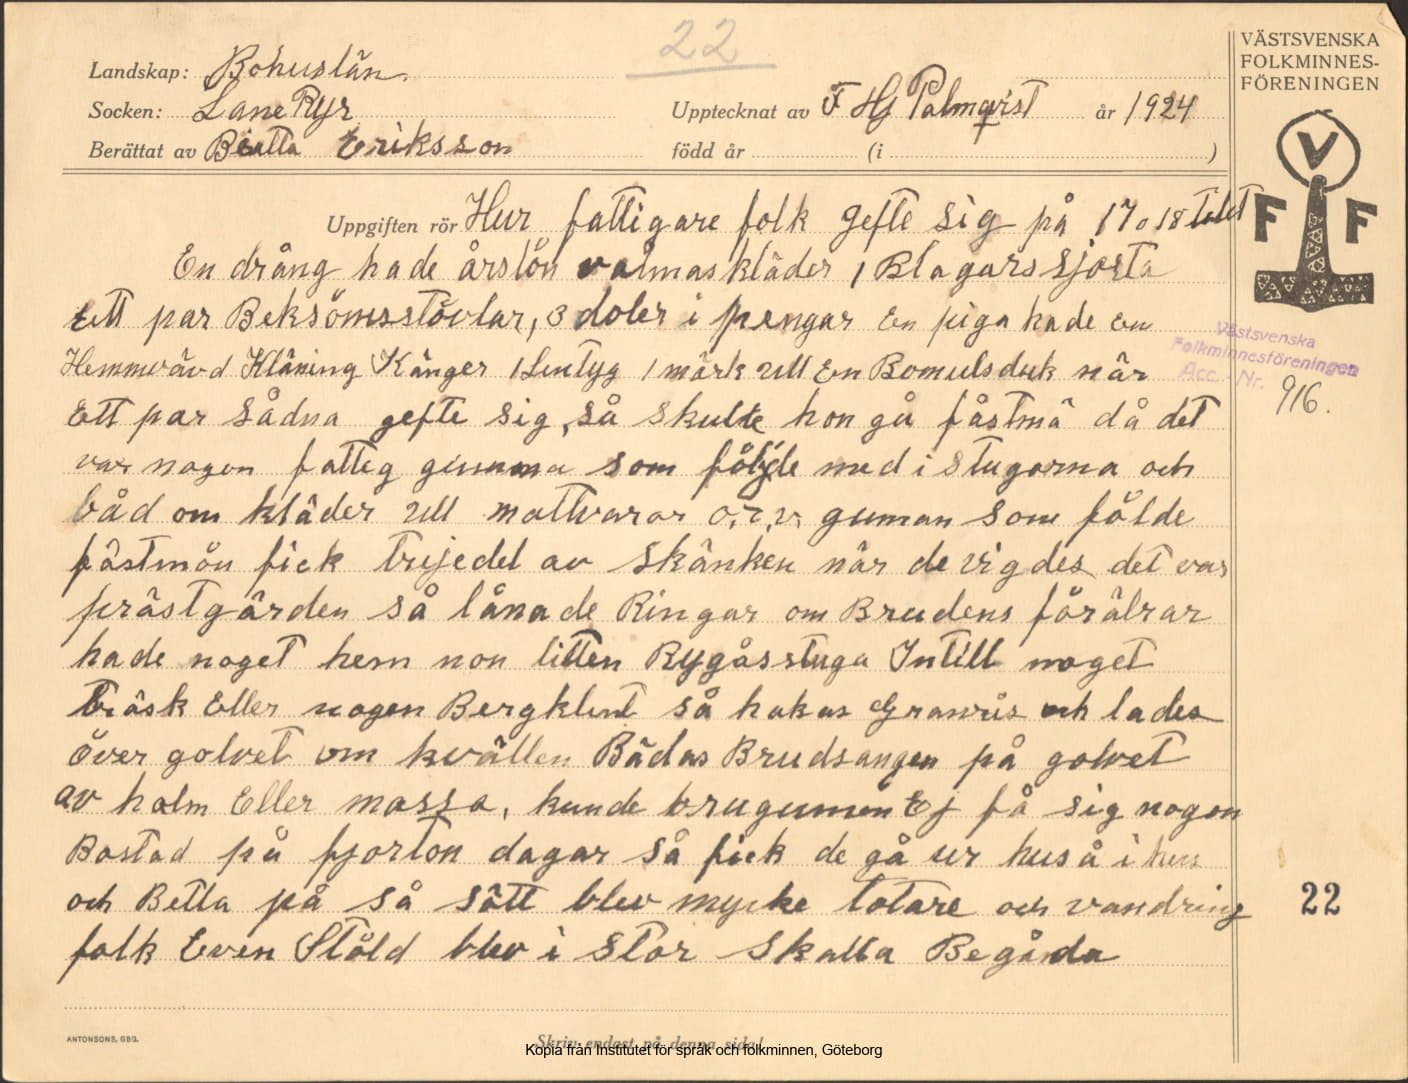 22
VÄSTSVENSKA
FOLKMINNES-
FÖRENINGEN
Landskap: Bohuslän.
Socken: Lane Ryr
Upptecknat av F Hj Palmqvist år 1924
Berättat av Beatta Eriksson född år (i )
V
F F
Uppgiften rör Hur fattigare folk gefte sig på 17 o 18 talet
En dräng hade årslön valmaskläder 1 Blagarssjorta
Ett par Beksömsstövlar, 3 doler i pengar En piga hade en
Hemmvävd Kläning Känger 1 Lintyg 1 märk ull En Bomulsduk när
Ett par sådna gefte sig, så skulle hon gå fästmä då det
var nogon fattig gumma som följde med i stugorna och
båd om kläder ull mattvaror o,s,v, guman som földe
fästmön fick trejedel av skänken när de vigdes det var
prästgården så lånade Ringar om Brudens förälrar
hade noget hem non litten Rygåsstuga Intill noget
träsk Eller nogen Bergklint så hakas Granris och lades
över golvet om kvällen Bädas Brudsangen på golvet
av halm Eller mossa, kunde brugumen Ej få sig nogon
Bostad på fjorton dagar så fick de gå ur hus å i hus
och Betla på så sätt blev mycke totare och vandring
folk Even Stöld blev i stor skalla Begånda
Västsvenska
Folkminnesföreningen
Acc. Nr. 916.
22
ANTONSONS, GBG.
Skriv endast på denna sida!
Kopia från Institutet för språk och folkminnen, Göteborg